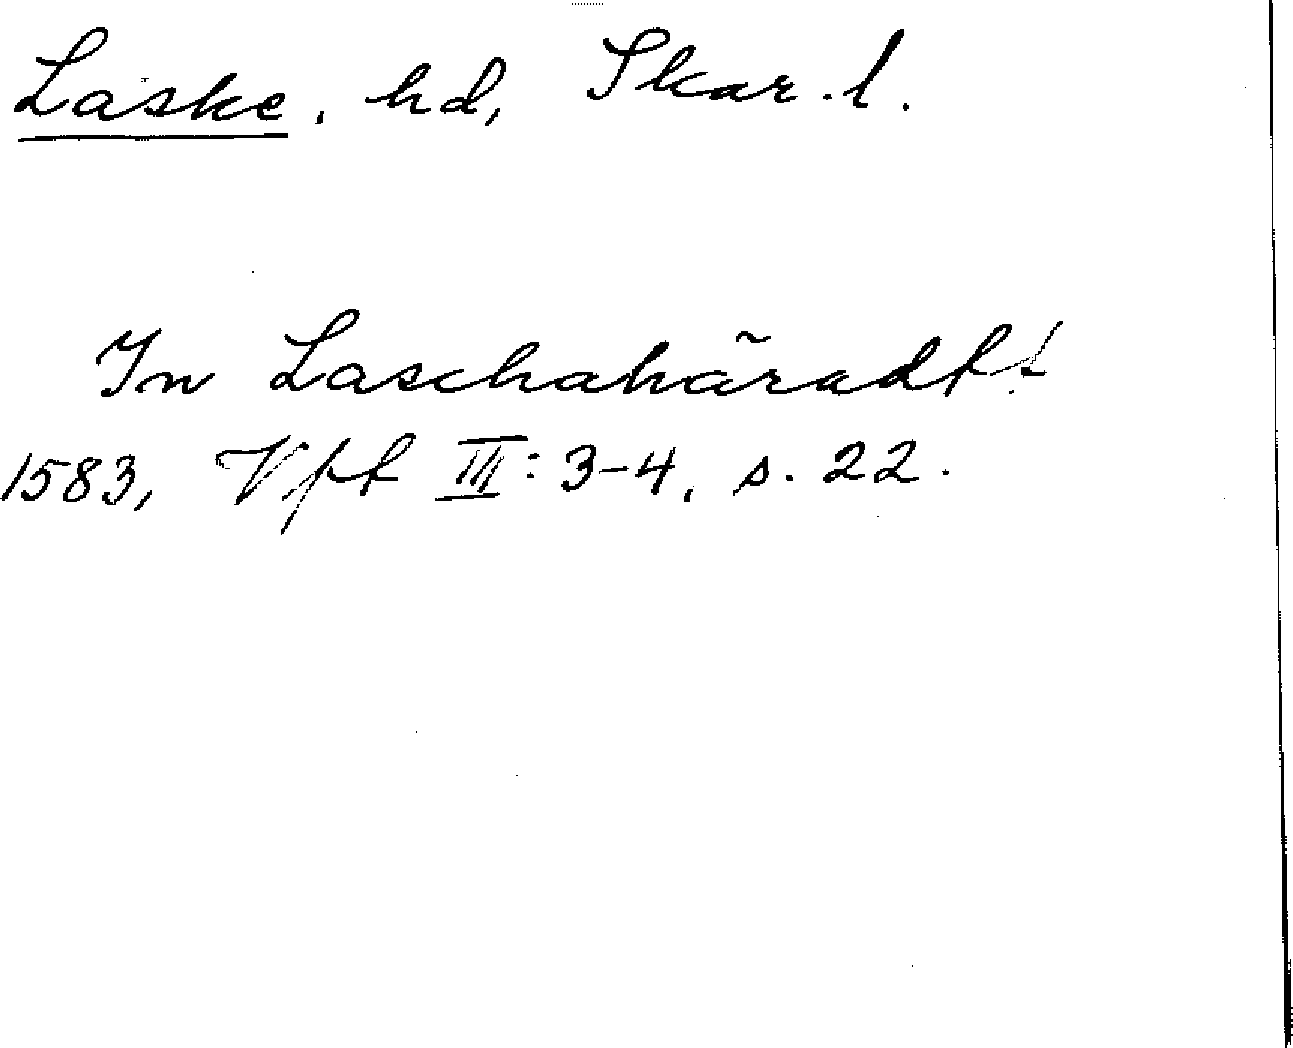 Laske. hd, Skar. l.
In Laschahäradh!
1583, Vft III: 3-4, s. 22.